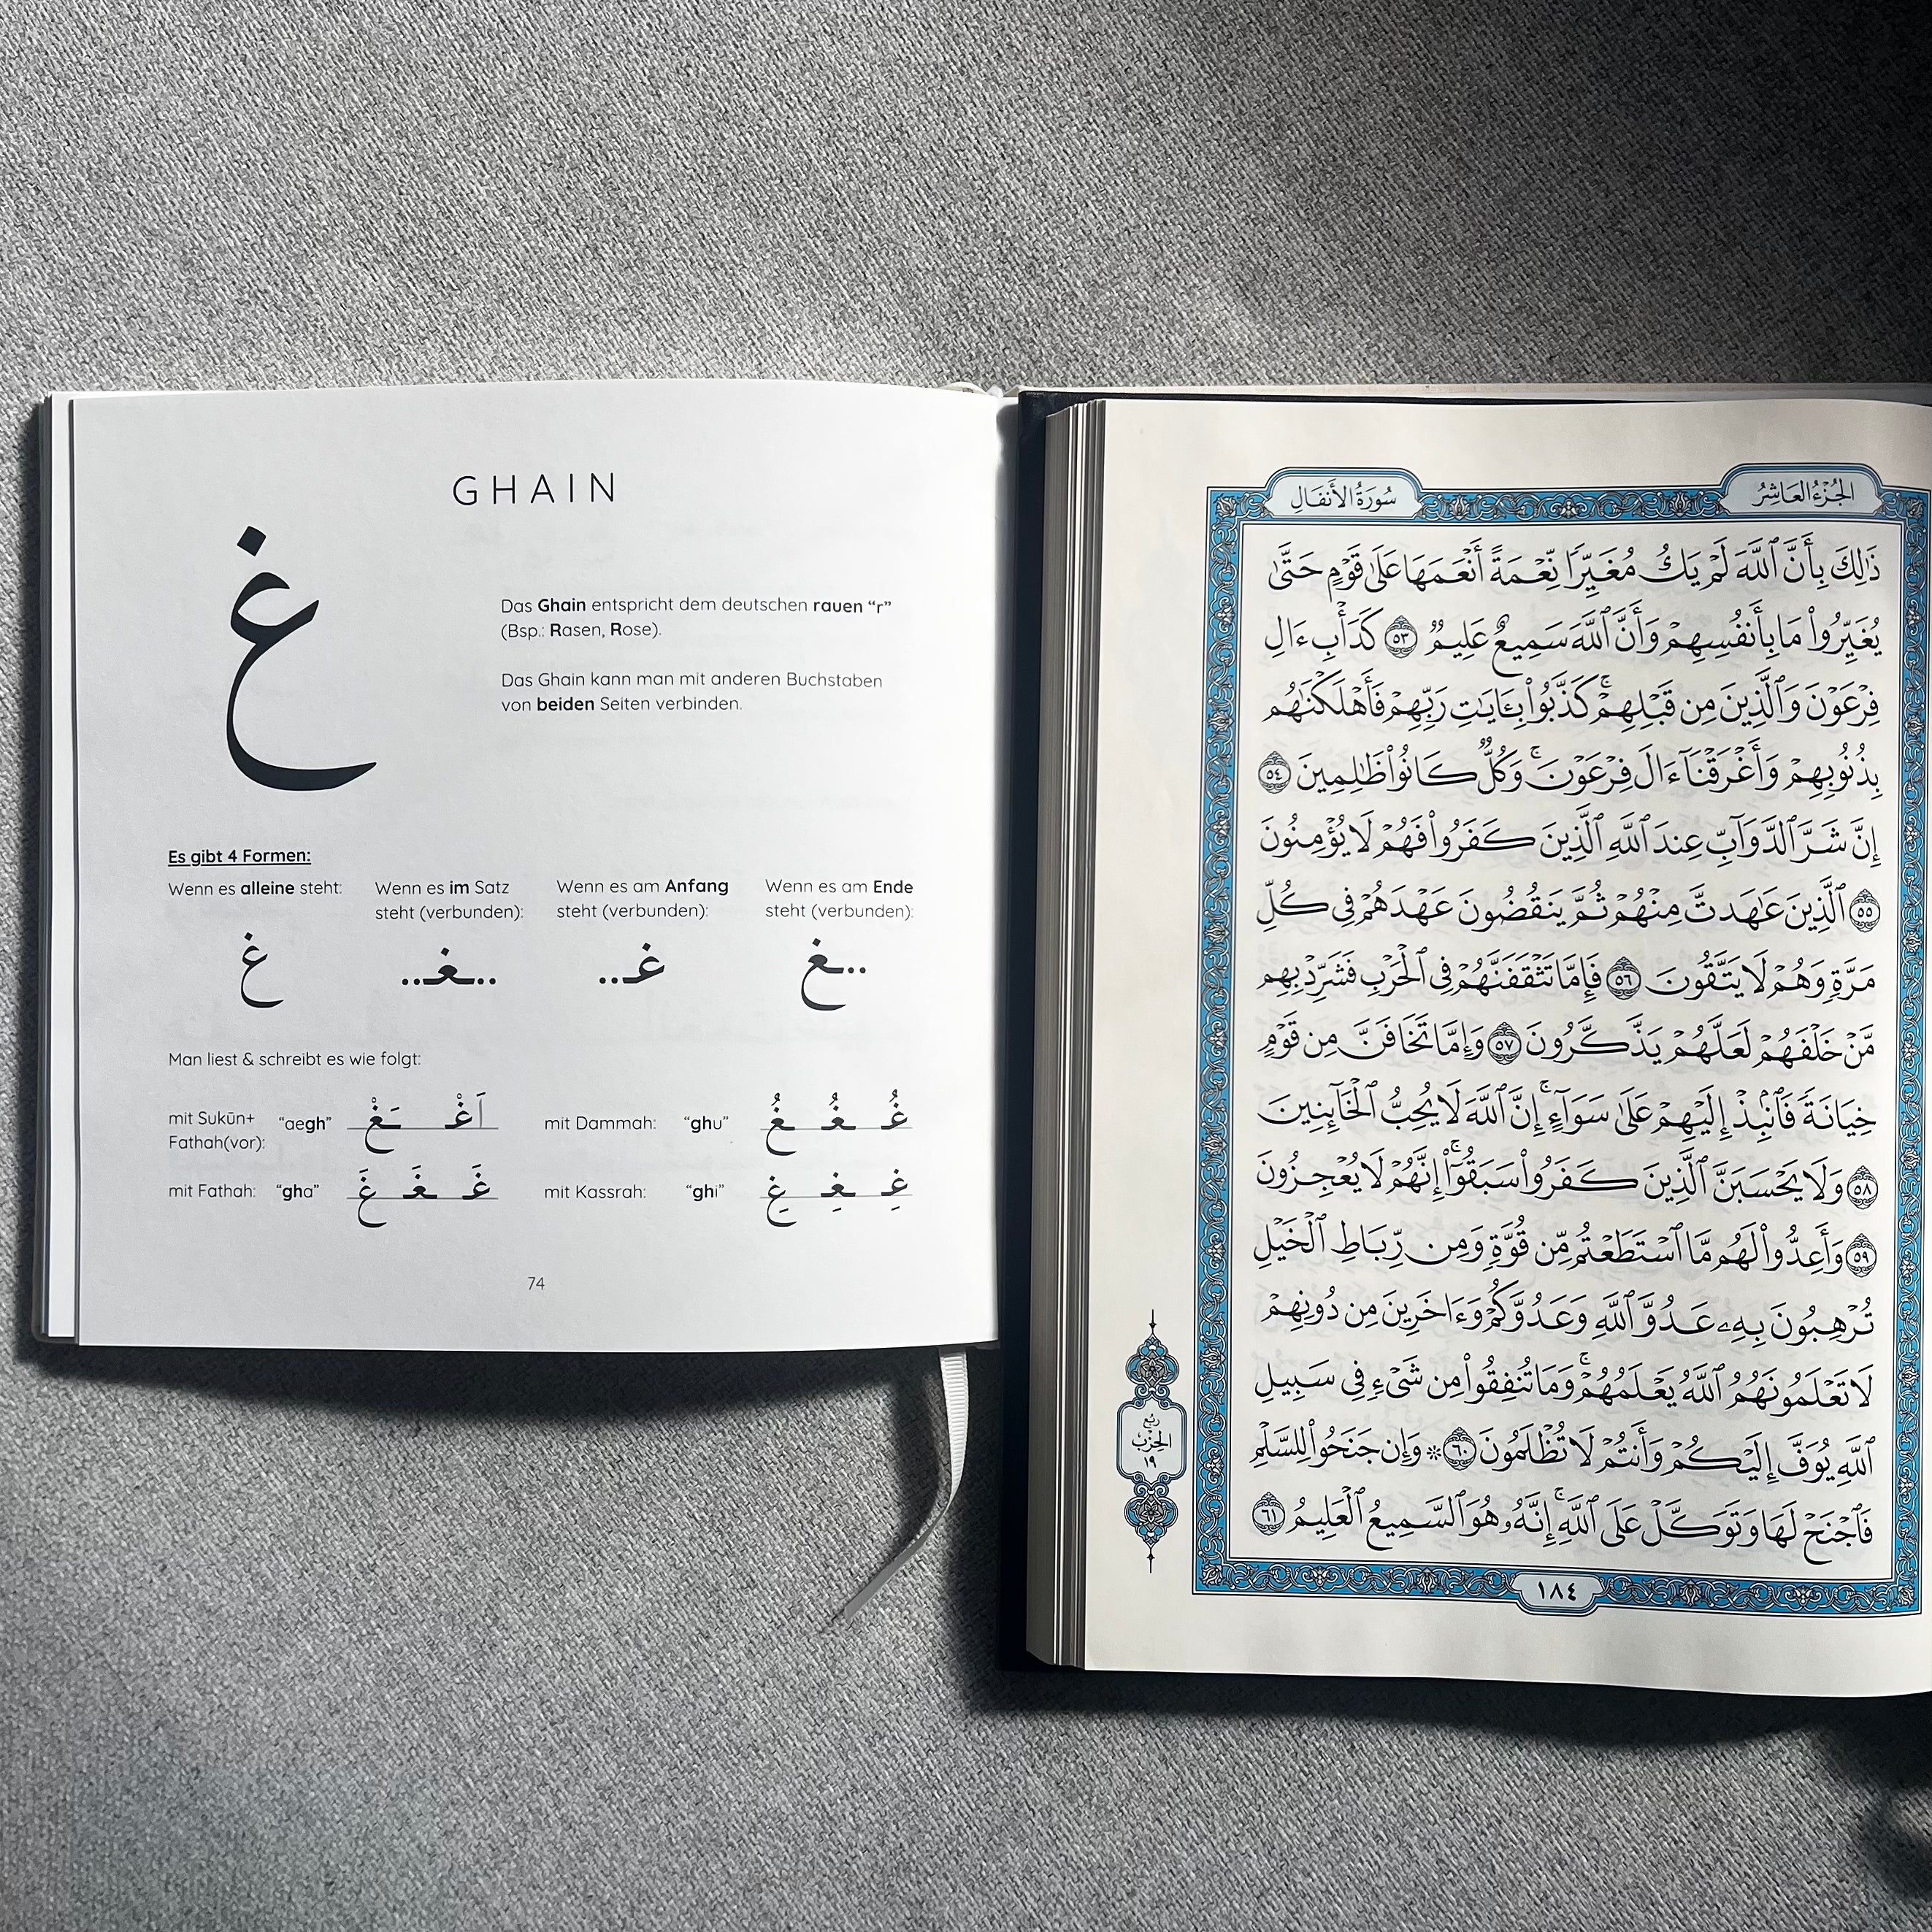 GHAIN
غ
Das Ghain entspricht dem deutschen rauen “r”
(Bsp.: Rasen, Rose).
Das Ghain kann man mit anderen Buchstaben
von beiden Seiten verbinden.
Es gibt 4 Formen:
Wenn es alleine steht:
غ
Wenn es im Satz
steht (verbunden):
..ـغـ..
Wenn es am Anfang
steht (verbunden):
غـ..
Wenn es am Ende
steht (verbunden):
..ـغ
Man liest & schreibt es wie folgt:
mit Sukūn+
Fathah(vor):
“aegh”
اَغْ ـَغْ
mit Dammah: “ghu”
غُـ ـغُـ ـغُ
mit Fathah: “gha”
غَـ ـغَـ ـغَ
mit Kassrah: “ghi”
غِـ ـغِـ ـغِ
74
الجُزْءُ العَاشِرُ
سُورَةُ الأَنفَالِ
ذَٰلِكَ بِأَنَّ ٱللَّهَ لَمْ يَكُ مُغَيِّرًا نِّعْمَةً أَنْعَمَهَا عَلَىٰ قَوْمٍ حَتَّىٰ
يُغَيِّرُوا۟ مَا بِأَنفُسِهِمْ وَأَنَّ ٱللَّهَ سَمِيعٌ عَلِيمٌ ٥٣ كَدَأْبِ ءَالِ
فِرْعَوْنَ وَٱلَّذِينَ مِن قَبْلِهِمْ ۚ كَذَّبُوا۟ بِـَٔايَـٰتِ رَبِّهِمْ فَأَهْلَكْنَـٰهُم
بِذُنُوبِهِمْ وَأَغْرَقْنَآ ءَالَ فِرْعَوْنَ ۚ وَكُلٌّ كَانُوا۟ ظَـٰلِمِينَ ٥٤
إِنَّ شَرَّ ٱلدَّوَآبِّ عِندَ ٱللَّهِ ٱلَّذِينَ كَفَرُوا۟ فَهُمْ لَا يُؤْمِنُونَ
٥٥ ٱلَّذِينَ عَـٰهَدتَّ مِنْهُمْ ثُمَّ يَنقُضُونَ عَهْدَهُمْ فِى كُلِّ
مَرَّةٍ وَهُمْ لَا يَتَّقُونَ ٥٦ فَإِمَّا تَثْقَفَنَّهُمْ فِى ٱلْحَرْبِ فَشَرِّدْ بِهِم
مَّنْ خَلْفَهُمْ لَعَلَّهُمْ يَذَّكَّرُونَ ٥٧ وَإِمَّا تَخَافَنَّ مِن قَوْمٍ
خِيَانَةً فَٱنۢبِذْ إِلَيْهِمْ عَلَىٰ سَوَآءٍ ۚ إِنَّ ٱللَّهَ لَا يُحِبُّ ٱلْخَآئِنِينَ
٥٨ وَلَا يَحْسَبَنَّ ٱلَّذِينَ كَفَرُوا۟ سَبَقُوٓا۟ ۚ إِنَّهُمْ لَا يُعْجِزُونَ
٥٩ وَأَعِدُّوا۟ لَهُم مَّا ٱسْتَطَعْتُم مِّن قُوَّةٍ وَمِن رِّبَاطِ ٱلْخَيْلِ
تُرْهِبُونَ بِهِۦ عَدُوَّ ٱللَّهِ وَعَدُوَّكُمْ وَءَاخَرِينَ مِن دُونِهِمْ
لَا تَعْلَمُونَهُمُ ٱللَّهُ يَعْلَمُهُمْ ۚ وَمَا تُنفِقُوا۟ مِن شَىْءٍ فِى سَبِيلِ
ٱللَّهِ يُوَفَّ إِلَيْكُمْ وَأَنتُمْ لَا تُظْلَمُونَ ٦٠ ۞ وَإِن جَنَحُوا۟ لِلسَّلْمِ
فَٱجْنَحْ لَهَا وَتَوَكَّلْ عَلَى ٱللَّهِ ۚ إِنَّهُۥ هُوَ ٱلسَّمِيعُ ٱلْعَلِيمُ ٦١
رُبْع
الحِزْب
١٩
١٨٤